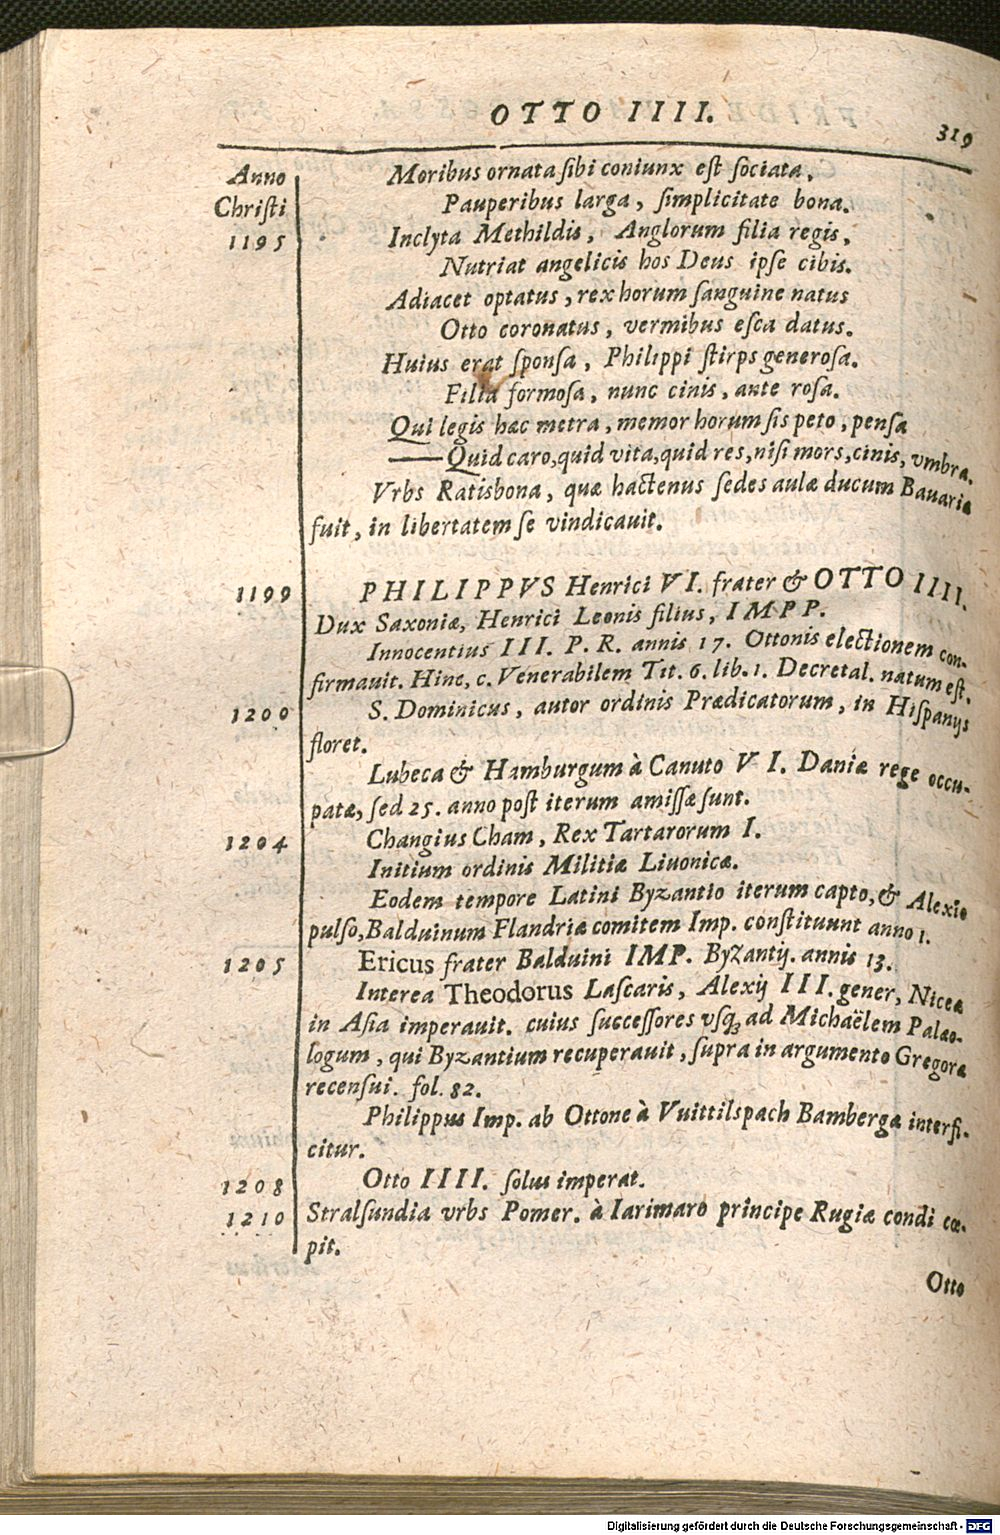 OTTO IIII. 319
Anno Moribus ornata ſibi coniunx eſt ſociata,
Chriſti Pauperibus larga, ſimplicitate bona.
1195 Inclyta Methildis, Anglorum filia regis,
Nutriat angelicis hos Deus ipſe cibis.
Adiacet optatus, rex horum ſanguine natus
Otto coronatus, vermibus eſca datus.
Huius erat ſponſa, Philippi ſtirps generoſa.
Filia formoſa, nunc cinis, ante roſa.
Qui legis hac metra, memor horum ſis peto, penſa
—— Quid caro, quid vita, quid res, niſi mors, cinis, vmbra.
Vrbs Ratisbona, quæ hactenus ſedes aulæ ducum Bauariæ
fuit, in libertatem ſe vindicauit.
1199 PHILIPPVS Henrici VI. frater & OTTO IIII.
Dux Saxoniæ, Henrici Leonis filius, IMPP.
Innocentius III. P. R. annis 17. Ottonis electionem con-
firmauit. Hinc, c. Venerabilem Tit. 6. lib. 1. Decretal. natum eſt.
1200 S. Dominicus, autor ordinis Prædicatorum, in Hiſpanijs
floret.
Lubeca & Hamburgum à Canuto VI. Daniæ rege occu-
patæ, ſed 25. anno poſt iterum amiſſæ ſunt.
1204 Changius Cham, Rex Tartarorum I.
Initium ordinis Militiæ Liuonicæ.
Eodem tempore Latini Byzantio iterum capto, & Alexio
pulſo, Balduinum Flandriæ comitem Imp. conſtituunt anno 1.
1205 Ericus frater Balduini IMP. Byzantij. annis 13.
Interea Theodorus Laſcaris, Alexij III. gener, Niceæ
in Aſia imperauit. cuius ſucceſſores vſq; ad Michaëlem Palæo-
logum, qui Byzantium recuperauit, ſupra in argumento Gregoræ
recenſui. fol. 82.
Philippus Imp. ab Ottone à Vuittilspach Bambergæ interfi-
citur.
1208 Otto IIII. ſolus imperat.
1210 Stralſundia vrbs Pomer. à Iarimaro principe Rugiæ condi cœ-
pit.
Otto
Digitalisierung gefördert durch die Deutsche Forschungsgemeinschaft - DFG